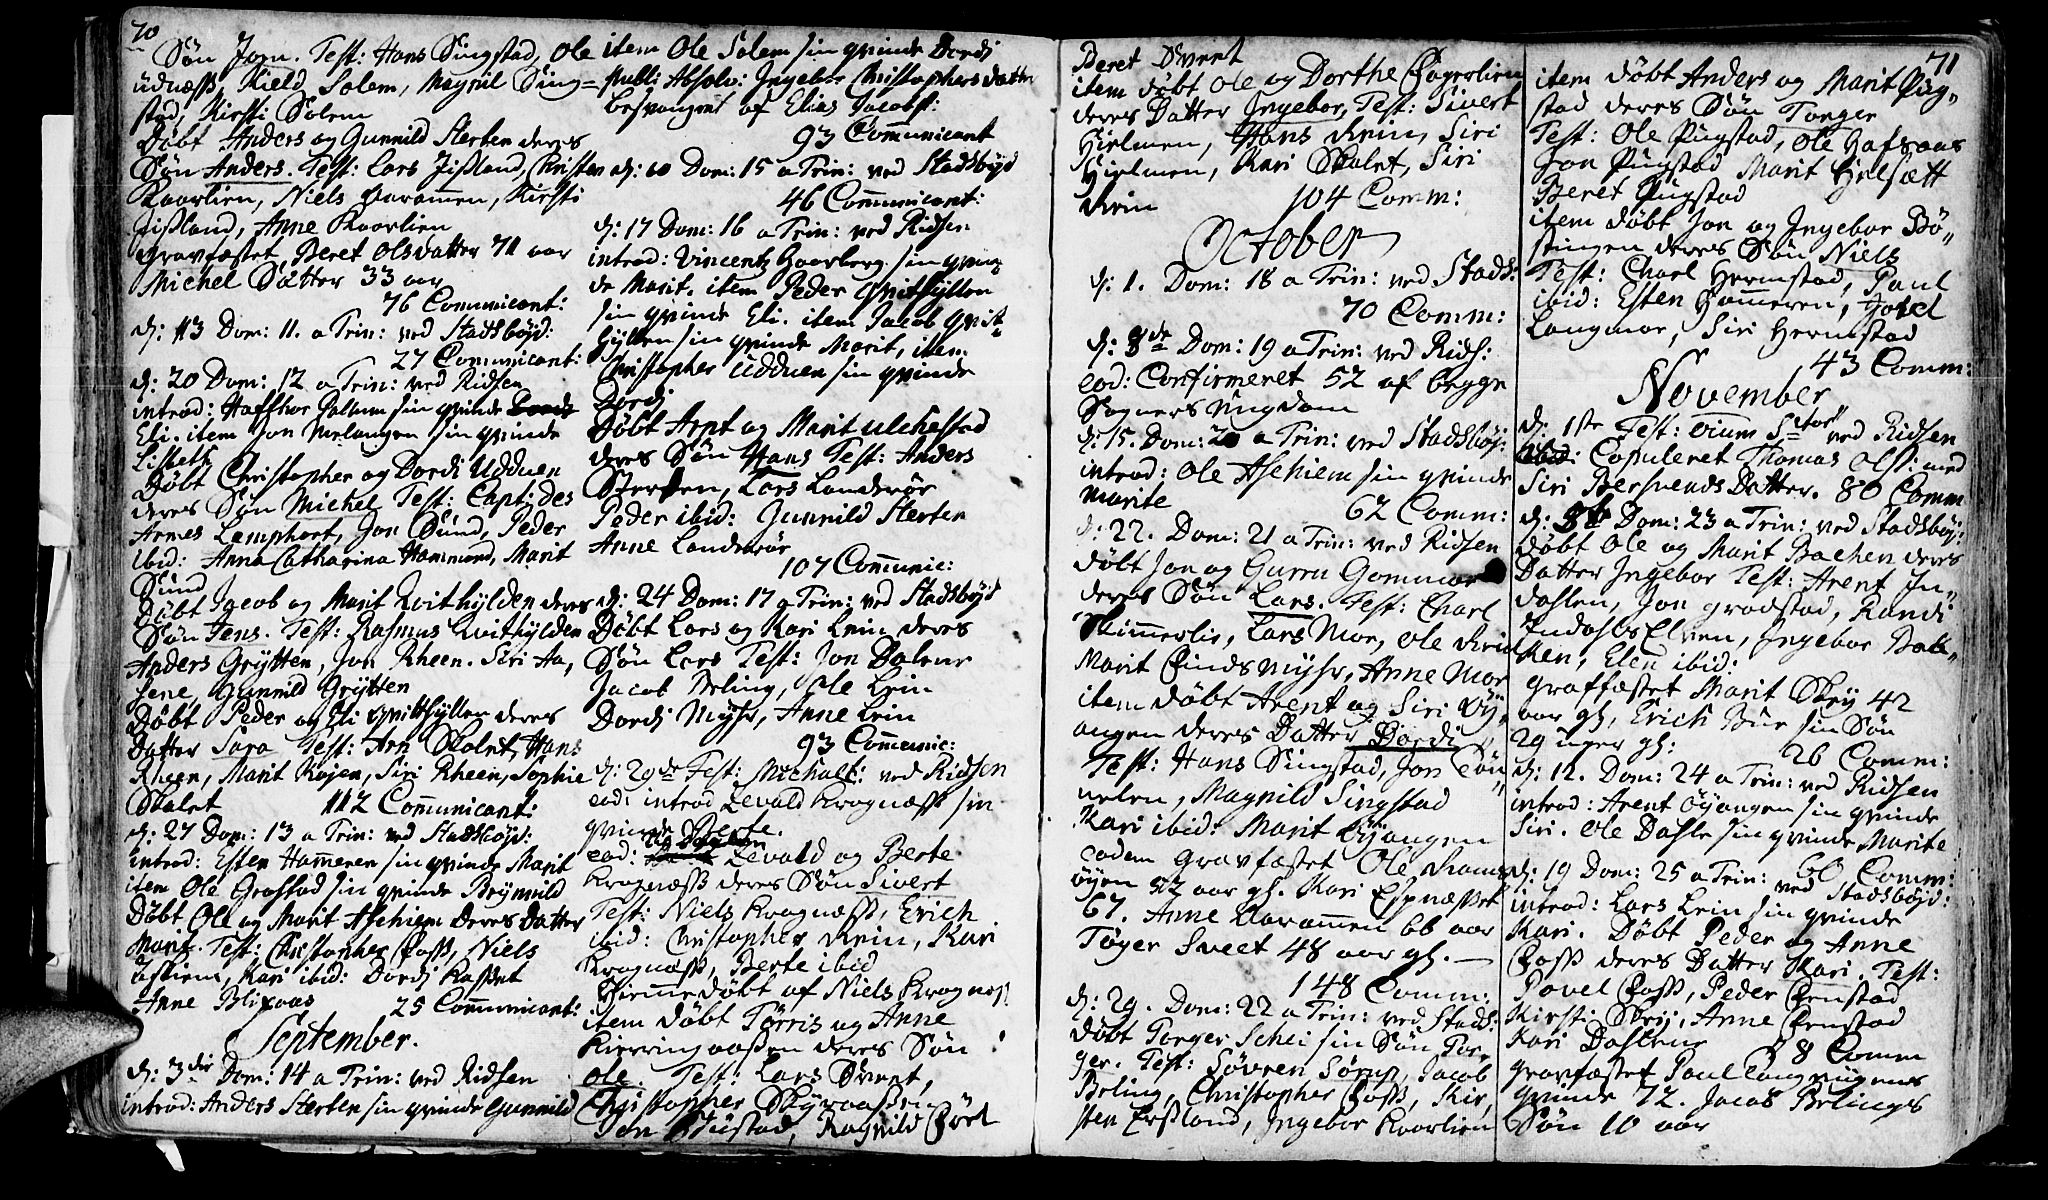 70
Søn Jorn. Test: Hans Singstad, Ole
udnæss, Kield Solem, Magnil Sing=
stad, Kirsti Solem
Døbt Anders og Gunnild Sterten deres
Søn Anders. Test: Lars Jisland, Christen
Kaarlien, Niels Aarammen, Kirsti
Jisland, Anne Kaarlien
gravfæstet, Beret Olsdatter 71 aar
Michel Sætter 33 aar
76 Communicant:
d: 13 Dom: 11. a Trin: ved Stadsbøyd:
27 Communicant:
d: 20 Dom: 12 a Trin: ved Ridsen
introd: Haffthor Solem sin qvinde
Eli. item Jon Melangen sin qvinde
Lisbeth
Døbt Christopher og Dordi Udduen
deres Søn Michel Test: Capt: des
Armes Lemphort, Jon Sund, Peder
ibid: Anna Catharina Hammond, Marit
Sund
Døbt Jacob og Marit Qvithylden deres
Søn Jens. Test: Rasmus Qvithylden
Anders Grytten, Jon Rheen. Siri Aa,
sene, Gunnild Grytten
Døbt Peder og Eli Qvithyllen deres
Datter Sara Test: Arn Skalet, Hans
Rheen, Marit Røjen, Siri Rheen, Sophie
Skalet 112 Communicant:
d: 27 Dom: 13 a Trin: ved Stadsbøyd:
introd: Esten Hameren sin qvinde Marit
item Ole Grafstad sin qvinde Brynnild
Døbt Ole og Marit Aschiem deres Datter
Marit. Test: Christopher Foss, Niels
Aschiem, Kari ibid: Dordi Rasset
Anne Blixaas 25 Communicant:
September.
d: 3die Dom: 14 a Trin: ved Ridsen
introd: Anders Sterten sin qvinde Gunnild
item Ole Solem sin qvinde Dordi
Publ: Absolv: Ingebor Christophers datter
besvangret af Elias Jacobs:
93 Communicant
d: 10 Dom: 15 a Trin: ved Stadsbøyd
46 Communicant:
d: 17 Dom: 16 a Trin: ved Ridsen
introd: Vincentz Haarberg sin qvin
de Marit. item Peder Qvithyllen
sin qvinde Eli. item Jacob Qvit
hyllen sin qvinde Marit, item
Christopher Udduen sin qvinde
Dordi
Døbt Arnt og Marit Ulchestad
deres Søn Hans Test: Anders
Sterten, Lars Landerør
Peder ibid: Gunnild Sterten
Anne Landerør
107 Communic:
d: 24 Dom: 17 a Trin: ved Stadsbøyd
Døbt Lars og Kari Lein deres
Søn Lars Test: Jon Dalene
Jacob Beling, Ole Lein
Dordi Myhr, Anne Lein
93 Communic:
d: 29de Fest: Michael: ved Ridsen
eod: introd Zevald Kragnæss sin
qvinde Berte.
eod: Zevald og Berte
Kragnæss deres Søn Sivert
Test: Niels Kragnæss, Erich
ibid: Christopher Rein, Kari
Kragnæss, Berte ibid
Hiemmedøbt af Niels Kragnæss
item døbt Tørris og Anne
Kierringaasen deres Søn
Ole. Test: Lars Øveret,
Christopher Skyraassen
Jon Stustad, Ragnild
Beret Øveret
item døbt Ole og Dorthe Fagerlien
deres Datter Ingebor, Test: Sivert
Hielmen, Hans Rein, Siri
Hielmen, Kari Skalet, Siri
Rein 104 Comm:
October
d: 1. Dom: 18 a Trin: ved Stads:
70 Comm:
d: 8de Dom: 19 a Trin: ved Rids:
eod: Confirmeret 52 af begge
Sognets Ungdom
d: 15. Dom: 20 a Trin: ved Stadsbøy:
introd: Ole Aschiem sin qvinde
Marite 62 Comm:
d: 22. Dom: 21 a Trin: ved Ridsen
døbt Jon og Gurru Gommor
deres Søn Lars. Test: Charl
Skimmerlie, Lars Mor, Ole
Marit Findsmyhr, Anne Mor
item døbt Arent og Siri Øy,
angen deres Datter Dordi
Test: Hans Singstad, Jon
Magnild Singstad
Kari ibid: Marit Øyangen
eodem gravfæstet Ole Rams
øyen 92 aar gl. Kari Espnæsset
67. Anne Aarammen 66 aar
Tøger Sveet 48 aar gl.
148 Comm:
d: 29. Dom: 22 a Trin: ved Stads:
døbt Torger Schei sin Søn Tor,
ger. Test: Søvren Sørup, Jacob
Beling, Christopher Foss, Kir,
sten Erssland, Ingebor Kaarlien
71
item døbt Anders og Marit Pug-
stad deres Søn Torger
Test: Ole Pugstad, Ole Hafsaas
Jon Pugstad Marit Helsætt
Beret Pugstad
item døbt Jon og Ingebor Bø-
stingen deres Søn Niels
Test: Charl Hermstad, Paul
ibid: Esten Hammeren, Joxel
Langmor, Siri Hermstad
43 Comm:
November
d: 1ste Fest: Omnium S:ctor: ved Ridsen
Copuleret Thomas Ols: med
Siri Bersvends Datter. 80 Comm
d: 5te Dom: 23 a Trin: ved Stadsbøy:
døbt Ole og Marit Bachen deres
Datter Ingebor Test: Arent In-
dahlen, Jon Gradstad, Randi
Indahls Elven, Ingebor Bak-
ken, Elen ibid:
graffæstet Marit Skey 42
aar gl, Erich Bur sin Søn
29 uger gl: 26 Comm:
d: 12. Dom: 24 a Trin: ved Ridsen
introd: Arent Øyangen sin qvinde
Siri. Ole Dahle sin qvinde Marite
60 Comm:
d: 19 Dom: 25 a Trin: ved Stadsbøyd:
introd: Lars Lein sin qvinde
Kari. Døbt Peder og Anne
Foss deres Datter Kari. Test:
Povel Foss, Peder Fenstad
Kirsti Skey, Anne Fenstad
Kari Dahlene 78 Comm
gravfæstet Paul
qvinde 72. Jacob Belings
Søn 10 aar